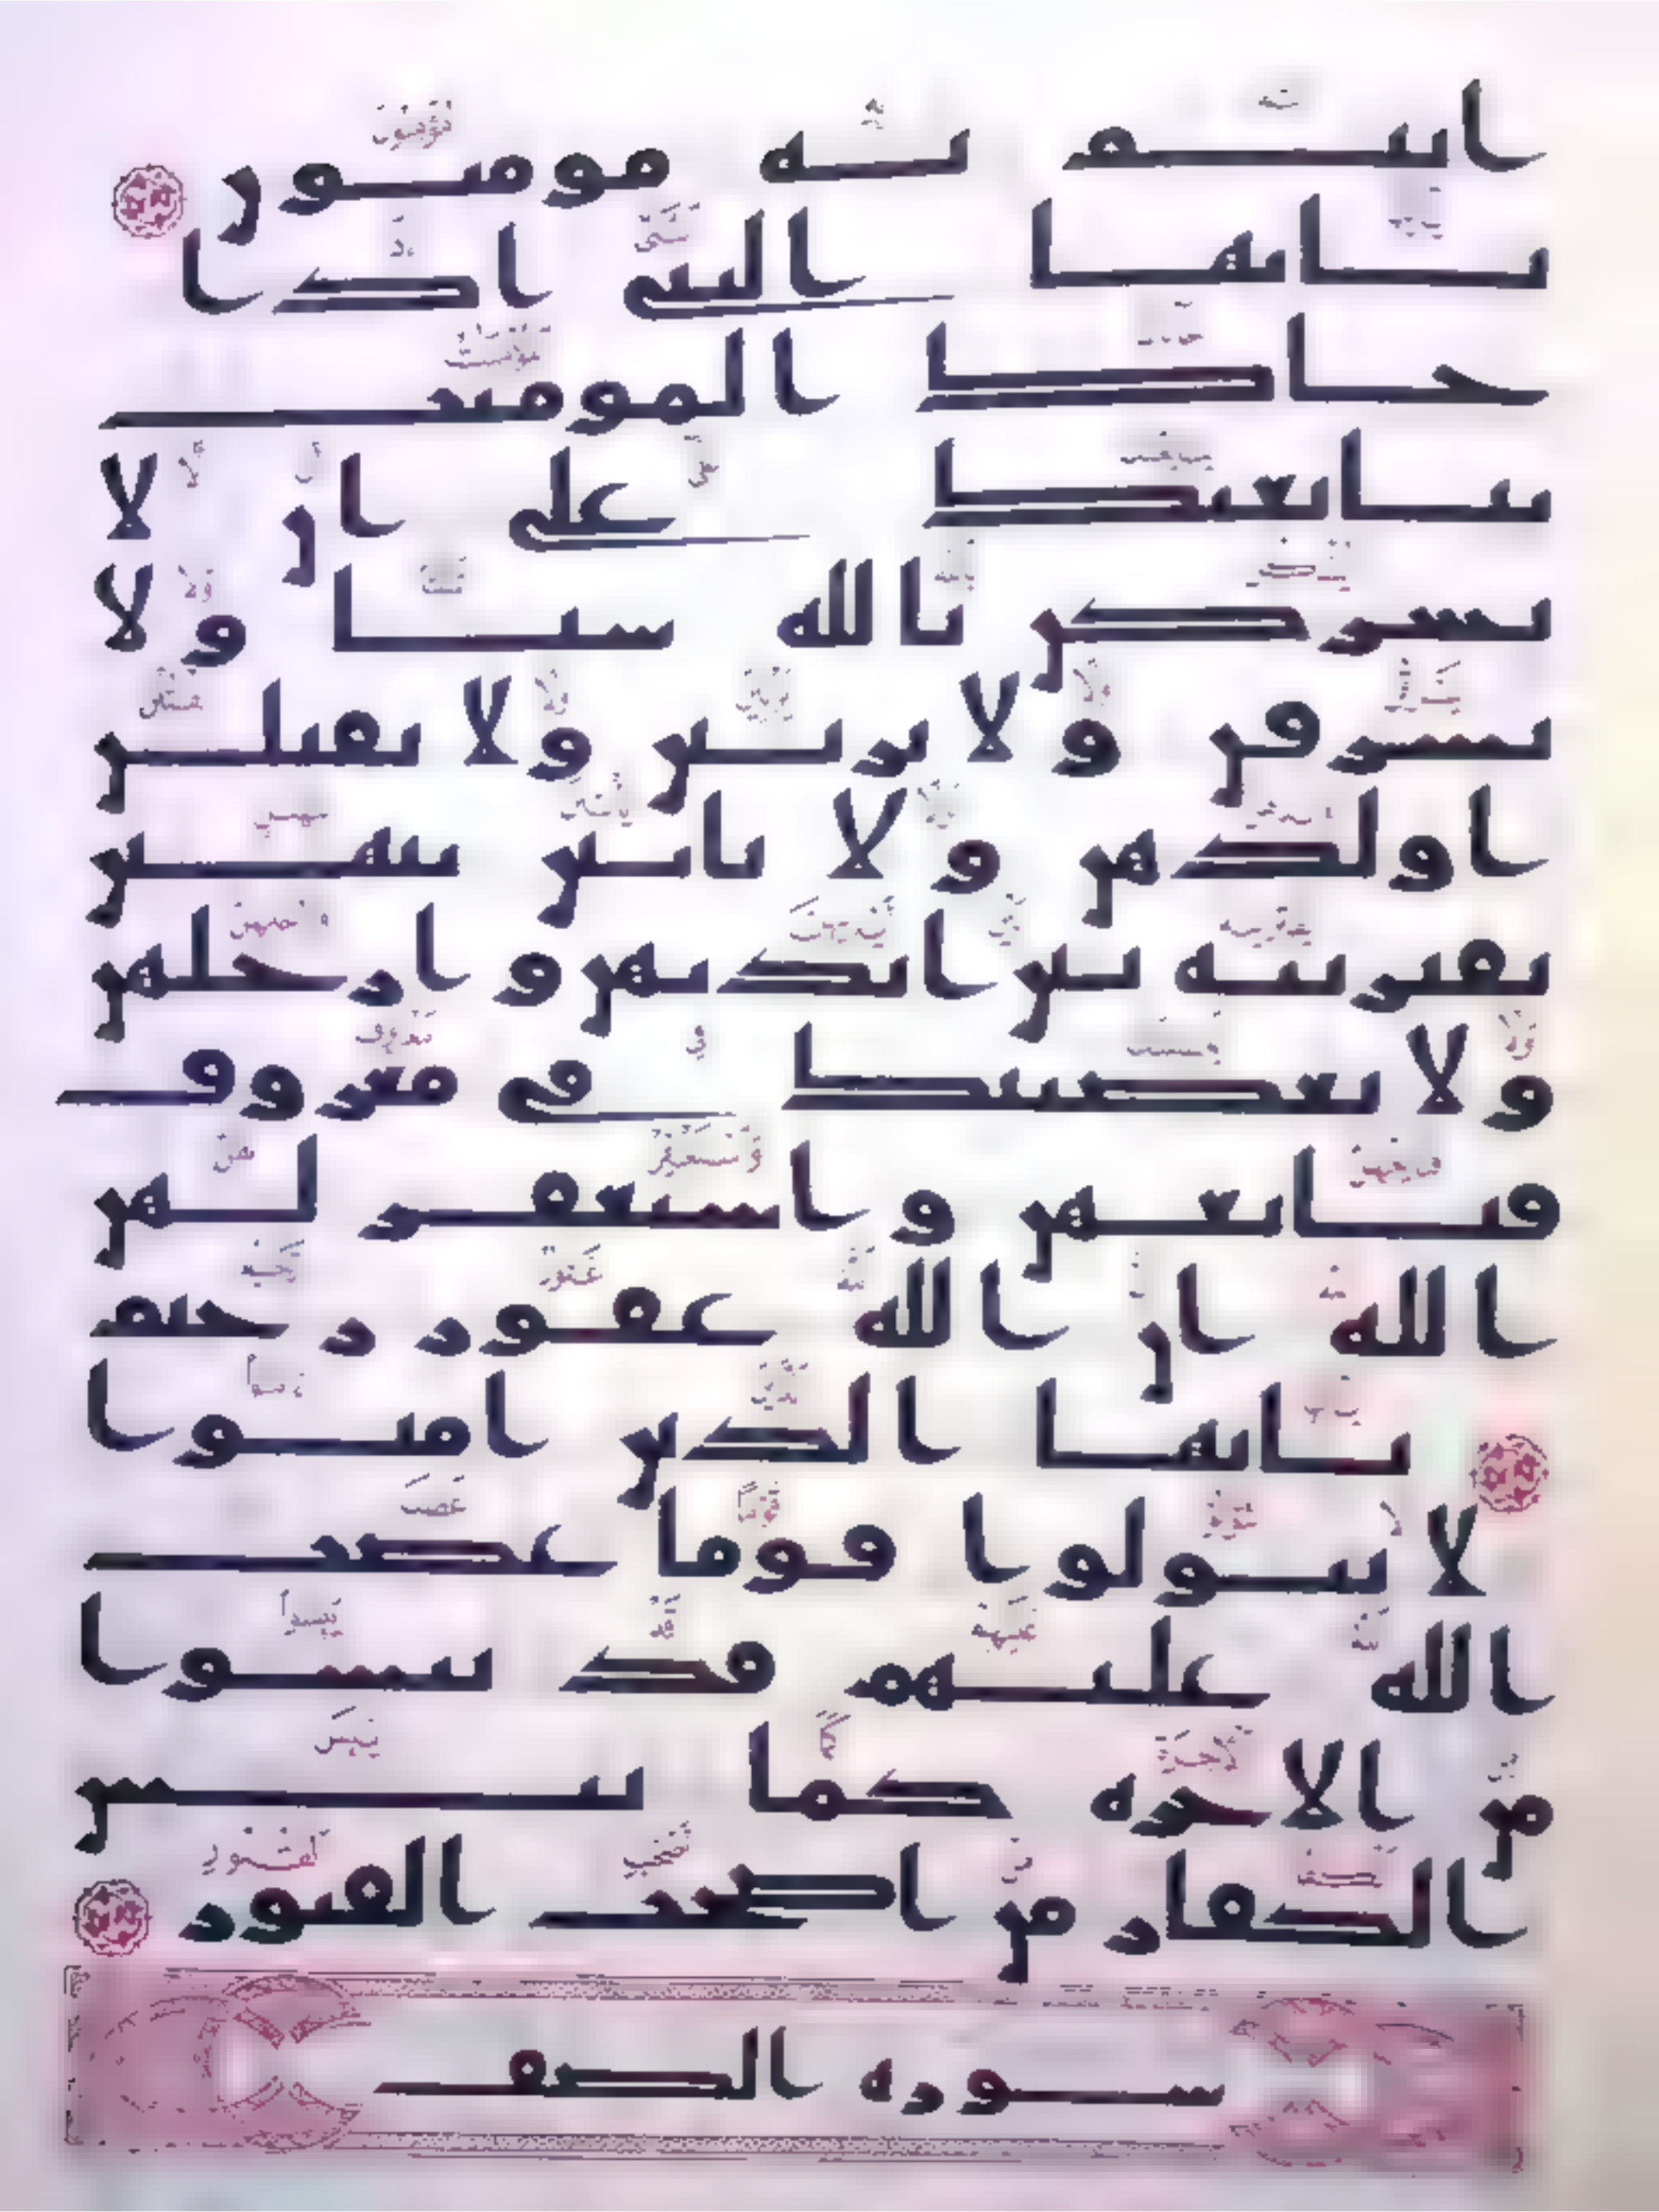 انتم به مومنون
يايها النبى اذا
جاك المومنت
يبايعنك على ان لا
يشركن بالله شيا ولا
يسرقن ولا يزنين ولا يقتلن
اولدهن ولا ياتين ببهتن
يفترينه بين ايديهن وارجلهن
ولا يعصينك فى معروف
فبايعهن واستغفر لهن
الله ان الله غفور رحيم
يايها الذين امنوا
لا تتولوا قوما غضب
الله عليهم قد يئسوا
من الاخرة كما يئس
الكفار من اصحب القبور
سورة الصف